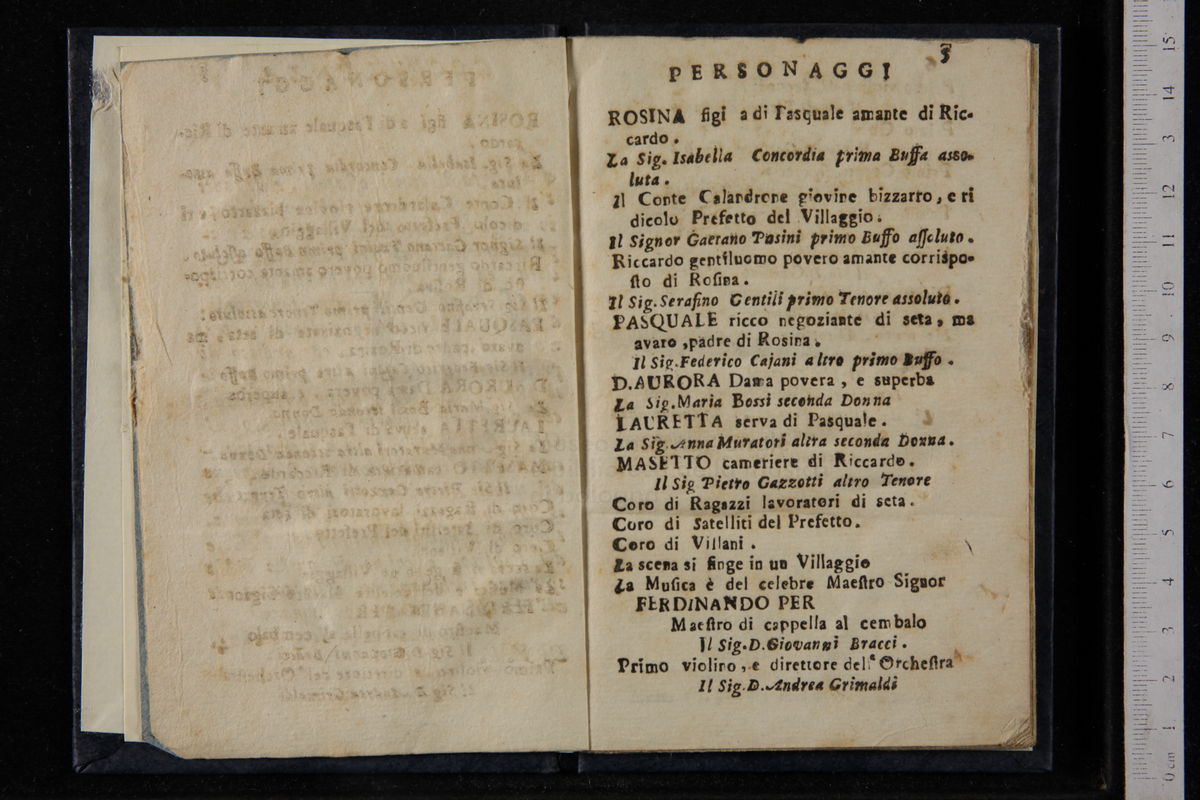 3
PERSONAGGI
ROSINA figi a di Pasquale amante di Ric-
cardo.
La Sig. Isabella Concordia prima Buffa asso-
luta.
Il Conte Calandrone giovine bizzarro, e ri
dicolo Prefetto del Villaggio.
Il Signor Gaetano Pasini primo Buffo assoluto.
Riccardo gentiluomo povero amante corrispo-
sto di Rosina.
Il Sig. Serafino Gentili primo Tenore assoluto.
PASQUALE ricco negoziante di seta, ma
avaro, padre di Rosina.
Il Sig. Federico Cajani altro primo Buffo.
D.AURORA Dama povera, e superba
La Sig. Maria Bossi seconda Donna
LAURETTA serva di Pasquale.
La Sig. Anna Muratori altra seconda Donna.
MASETTO cameriere di Riccardo.
Il Sig Pietro Gazzotti altro Tenore
Coro di Ragazzi lavoratori di seta.
Coro di Satelliti del Prefetto.
Coro di Villani.
La scena si finge in un Villaggio
La Musica è del celebre Maestro Signor
FERDINANDO PER
Maestro di cappella al cembalo
Il Sig. D. Giovanni Bracci.
Primo violino, e direttore dell' Orchestra
Il Sig. D. Andrea Grimaldi